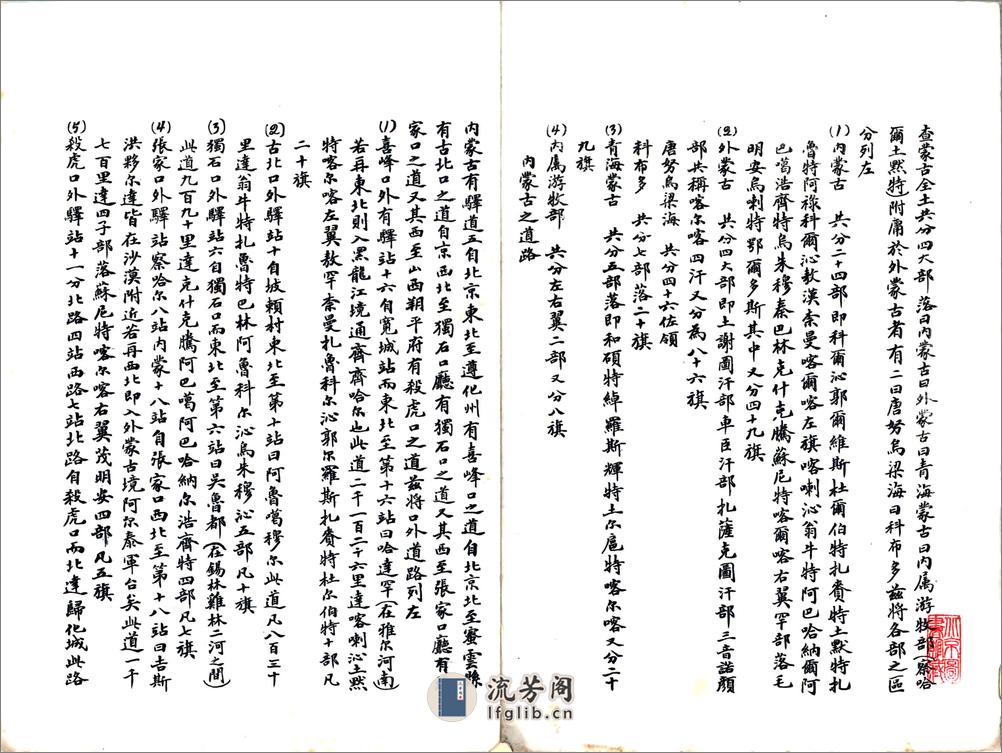 查蒙古全土共分四大部落曰內蒙古曰外蒙古曰青海蒙古曰內属游牧部察哈
爾土黙特附庸於外蒙古者有二曰唐努烏梁海曰科布多茲將各部之區
分列左
(1)內蒙古　共分二十四部即科爾沁郭爾維斯杜爾伯特扎賚特土默特扎
魯特阿祿科爾沁敖漢柰曼喀爾喀左旗喀喇沁翁牛特阿巴哈納爾阿
巴噶浩齊特烏朱穆秦巴林克什克騰蘇尼特喀爾喀右翼罕部落毛
明安烏喇特鄂爾多斯其中又分四十九旗
(2)外蒙古　共分四大部即土謝圖汗部車臣汗部扎薩克圖汗部三音諾顏
部共稱喀尔喀四汗又分為八十六旗
唐努烏梁海　共分四十六佐領
科布多　共分七部落二十旗
(3)青海蒙古　共分五部落即和碩特綽羅斯輝特土尔扈特喀尔喀又分二十
九旗
(4)內属游牧部　共分左右翼二部又分八旗
內蒙古之道路
內蒙古有驛道五自北京東北至遵化州有喜峰口之道自北京北至蜜雲縣
有古北口之道自京西北至獨石口廳有獨石口之道又其西至張家口廳有
家口之道又其西至山西朔平府有殺虎口之道茲將口外道路列左
(1)喜峰口外有驛站十六自寬城站而東北至第十六站曰哈達罕(在雅尔河南)
若再東北則入黑龍江境通齊齊哈尔也此道二千一百二十六里達喀喇沁土黙
特喀尔喀左翼敖罕柰曼扎魯科尔沁郭尔羅斯扎賚特杜尔伯特十部凡
二十旗
(2)古北口外驛站十自坡賴村東北至第十站曰阿魯噶穆尔此道凡八百三十
里達翁牛特扎魯特巴林阿魯科尔沁烏朱穆沁五部凡十旗
(3)獨石口外驛站六自獨石口而東北至第六站曰吴魯都(在錫林雞林二河之間)
此道九百九十里達克什克騰阿巴噶阿巴哈納尔浩齊特四部凡七旗
(4)張家口外驛站察哈尔八站內蒙十八站自張家口西北至第十八站曰吉斯
洪夥尔達皆在沙漠附近若再西北即入外蒙古境阿尔泰軍台矣此道一千
七百里達四子部落蘇尼特喀尔喀右翼茂明安四部凡五旗
(5)殺虎口外驛站十一分北路四站西路七站北路自殺虎口而北達歸化城此路
流芳阁
lfglib.cn